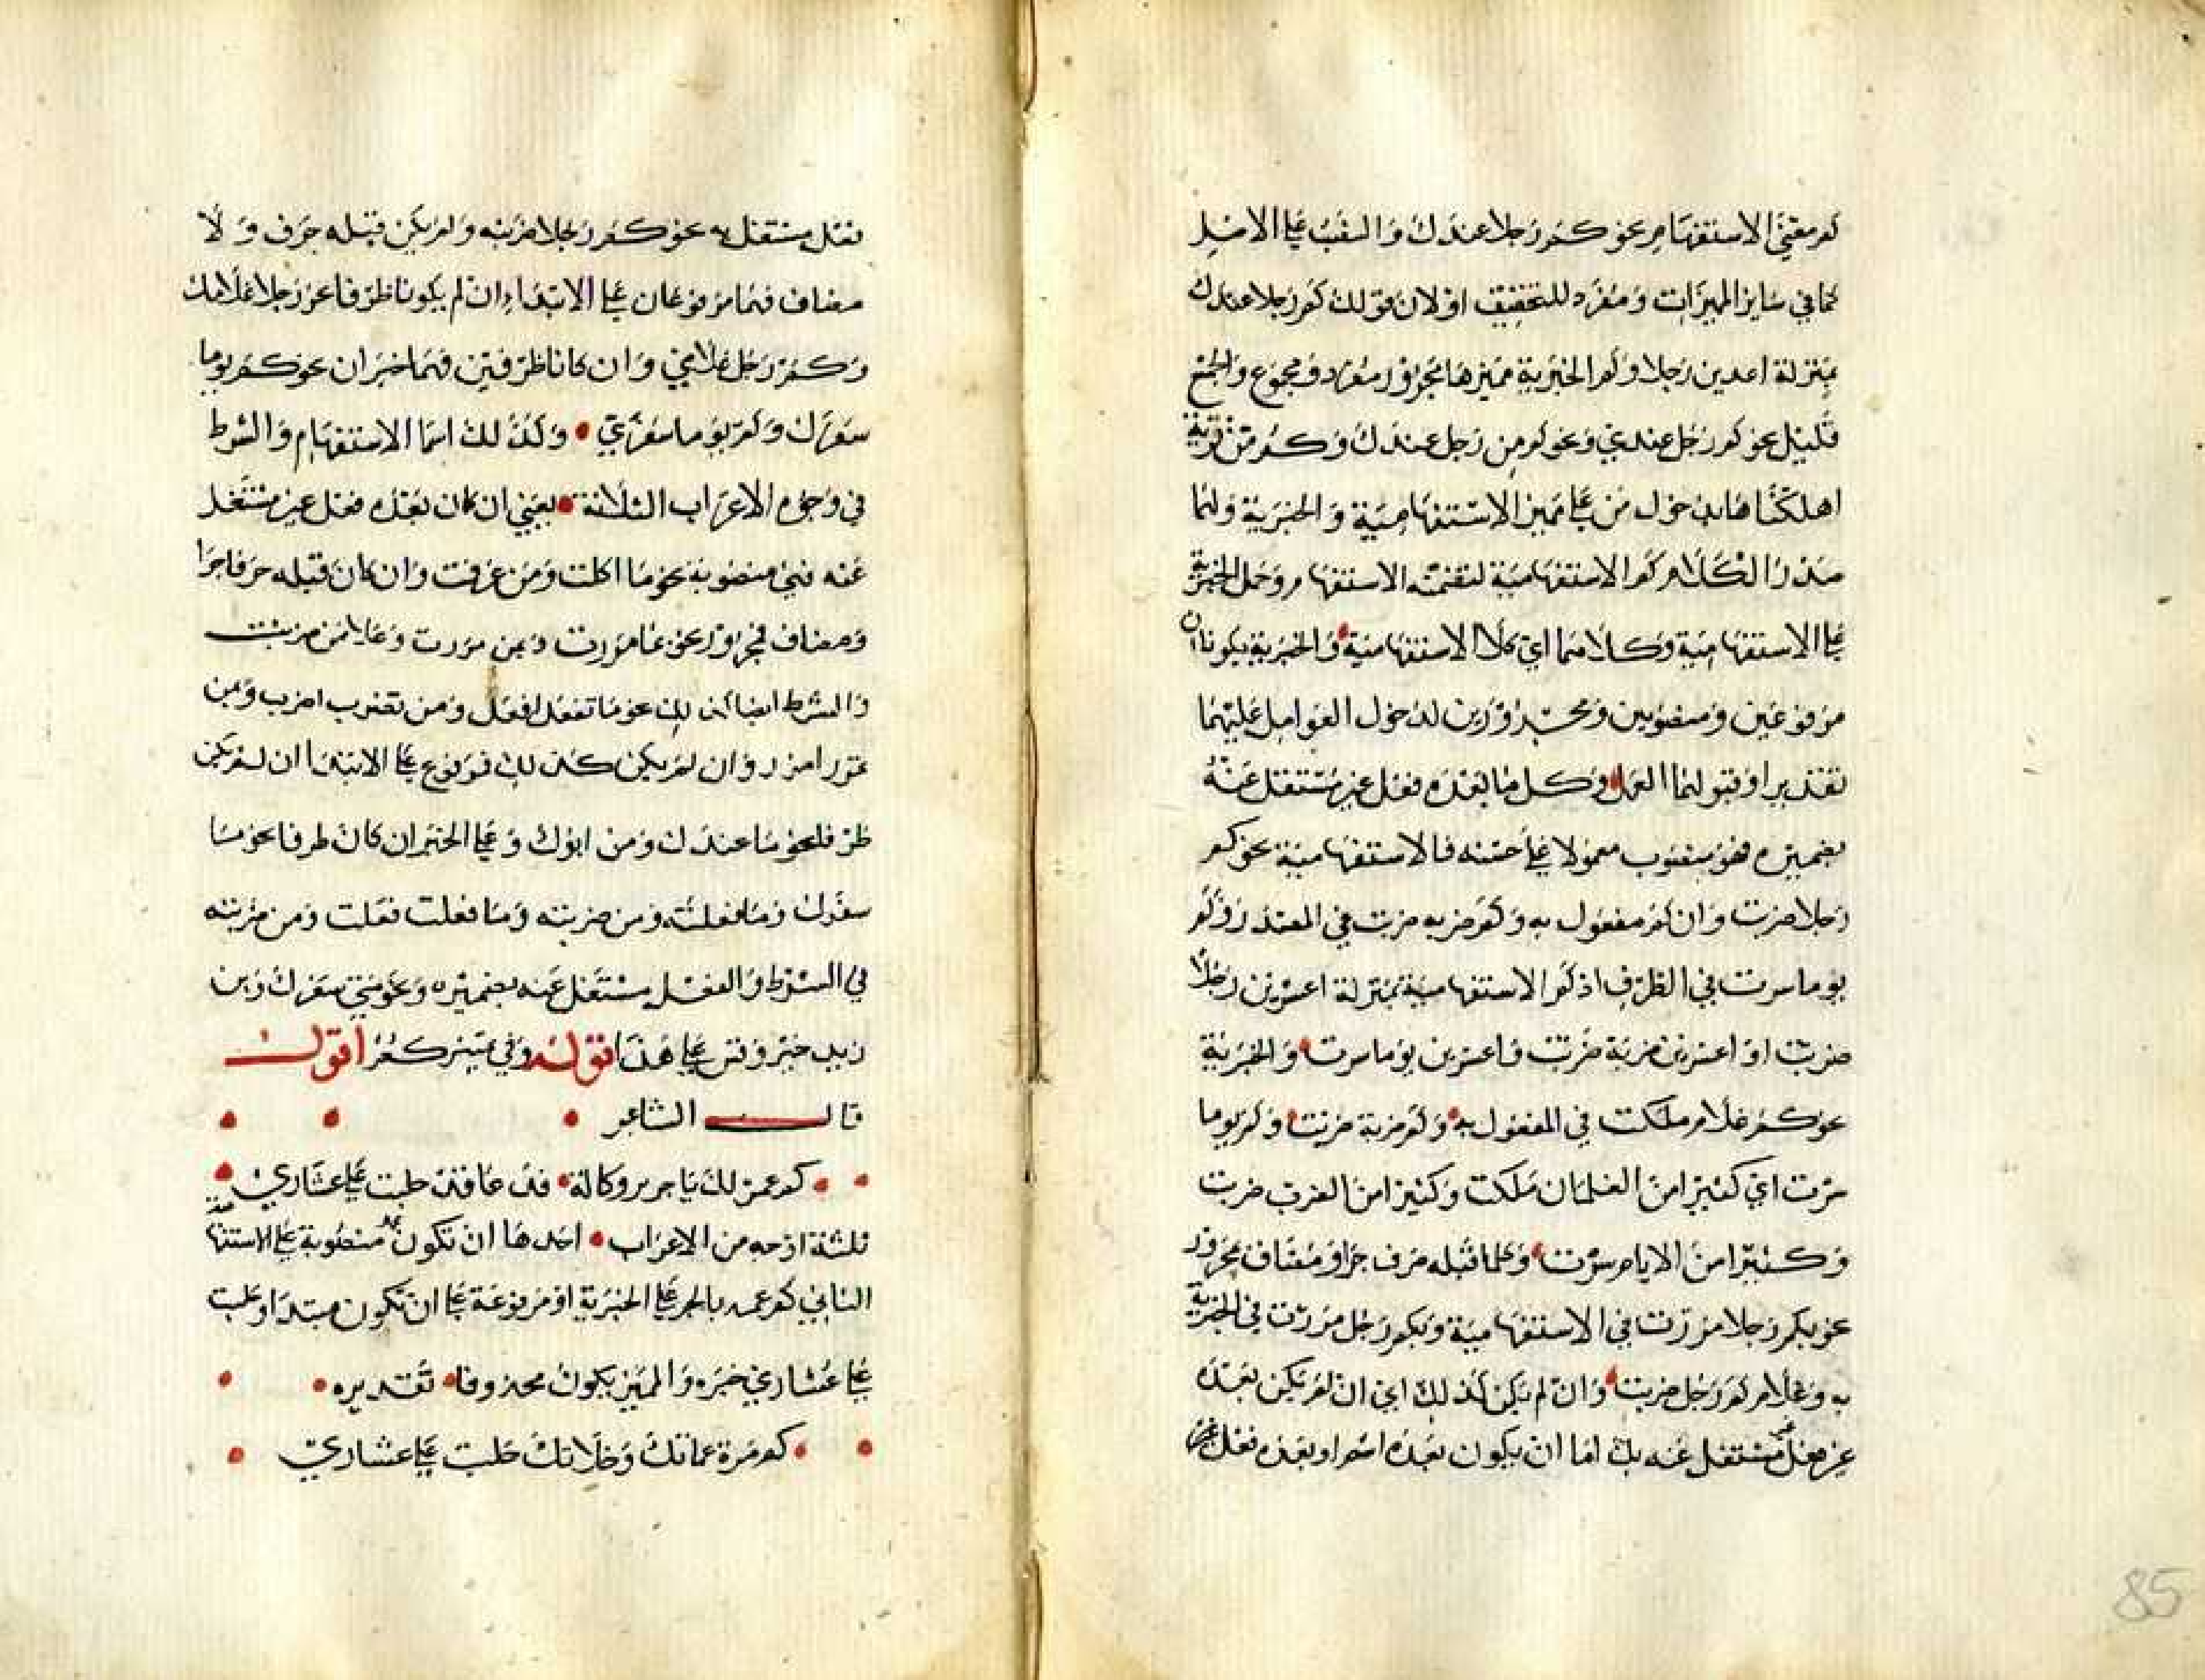 كم معنى الاستفهام نحو كم رجلا عندك والنصب على الاصل
كما في ساير المميزات ومفرد للتخفيف او لان قولك كم رجلا عندك
بمنزلة اعشرين رجلا وكم الخبرية مميزها مجرور مفرد ومجموع والجمع
قليل نحو كم رجل عندي ونحو كم من رجل عندك وكم من قرية
اهلكناها بدخول من على مميز الاستفهامية والخبرية ولهما
صدر الكلام كم الاستفهامية لتضمنه الاستفهام وحمل الخبرية
على الاستفهامية وكلاهما اي كلا الاستفهامية والخبرية يكونان
مرفوعين ومنصوبين ومجرورين لدخول العوامل عليهما
تقديرا وقبولهما العمل وكل ما بعده فعل غير مشتغل عنه
بضميره فهو منصوب معمولا على حسبه فالاستفهامية نحو كم
رجلا ضربت وان كم مفعول به وكم ضربه ضربت في المصدر وكم
يوما سرت في الظرف اذ كم الاستفهامية بمنزلة اعشرين رجلا
ضربت او اعشرين ضربة ضربت واعشرين يوما سرت والخبرية
نحو كم غلام ملكت في المفعول به وكم ضربة ضربت وكم يوما
سرت اي كثيرا من الغلمان ملكت وكثيرا من الضرب ضربت
وكثيرا من الايام سرت وكلما قبله حرف جر او مضاف مجرور
نحو بكم رجلا مررت في الاستفهامية وبكم رجل مررت في الخبرية
به وغلام كم رجل ضربت وان لم يكن كذلك اي ان لم يكن بعده
غير فعل غير مشتغل عنه بل اما ان يكون بعده اسم او بعده فعل غير
فعل مشتغل به نحو كم رجلا ضربته ولم يكن قبله حرف ولا
مضاف فهما مرفوعان على الابتداء ان لم يكونا ظرفا نحو رجلا غلامك
وكم رجل غلامي وان كانا ظرفين فهما خبران نحو كم يوما
سفرك وكم يوما سفري وكذلك اسما الاستفهام والشرط
في وجوه الاعراب الثلاثة يعني ان كان بعده فعل غير مشتغل
عنه فهي منصوبة نحو ما اكلت ومن عرفت وان كان قبله حرفا جرا
ومضاف فمجرور نحو عما مررت وبمن مررت وغلام من ضربت
والشرط ايضا كذلك نحو ما تفعل افعل ومن تضرب اضرب وبمن
تمرر امرر وان لم يكن كذلك فمرفوع على الابتداء ان لم يكن
ظرفا نحو ما عندك ومن ابوك وعلى الخبر ان كان ظرفا نحو ما
سفرك وما فعلته ومن ضربته وما فعلت فعلت ومن ضربته
في الشرط والفعل مشتغل عنه بضميره ونحو متى سفرك وبين
زيد خبر وقس على هذا قوله وفي مميز كم اقول
قال الشاعر
كم عمة لك يا جرير وخالة فدعاء قد حلبت علي عشاري
ثلثة اوجه من الاعراب احدها ان تكون عمة منصوبة على الاستفها
الثاني كم عمة بالجر على الخبرية او مرفوعة على ان تكون مبتدا وحلبت
علي عشاري خبره والمميز يكون محذوفا تقديره
كم مرة عماتك وخالاتك حلبت علي عشاري
85